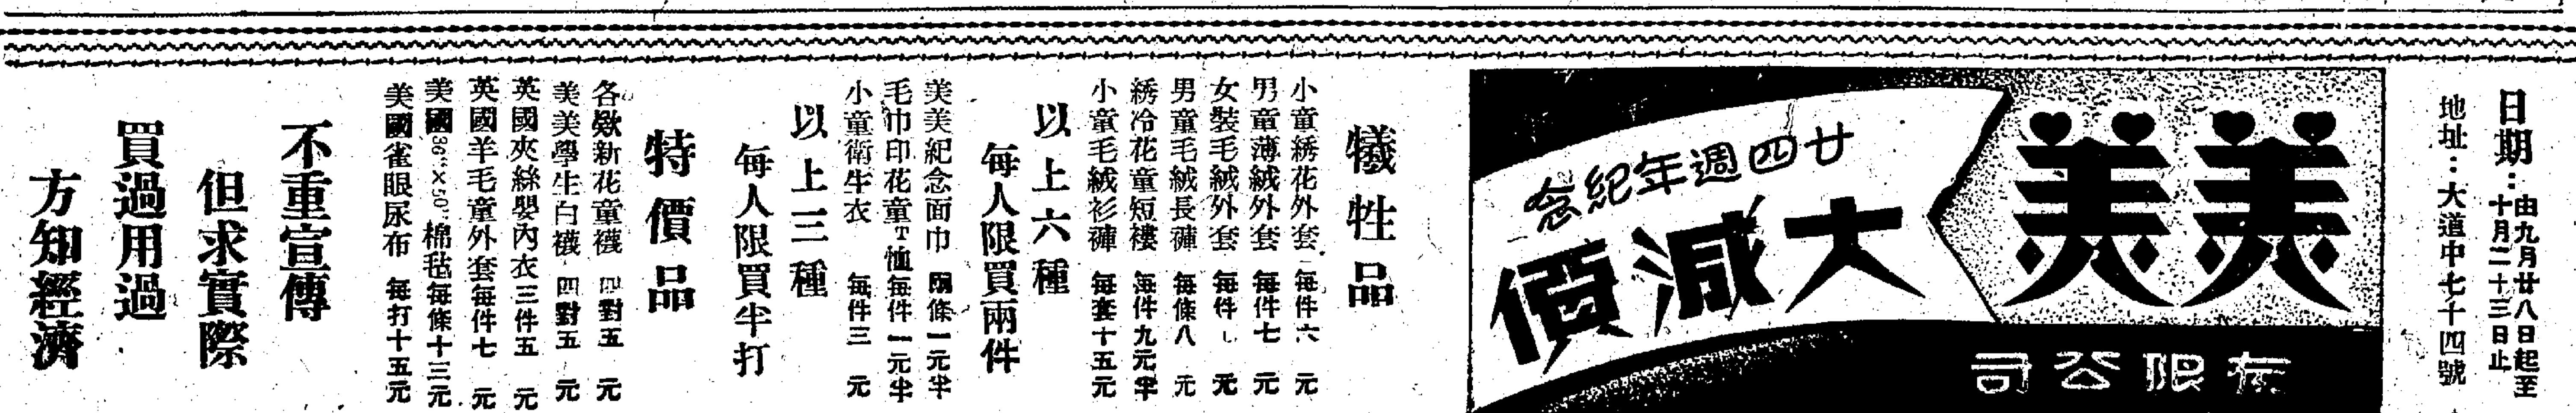 日期：由九月廿八日起至
十月二十三日止
地址：大道中七十四號
美美
有限公司
廿四週年紀念
大減價
犧牲品
小童綉花外套 每件六元
男童薄絨外套 每件七元
女裝毛絨外套 每件 元
男童毛絨長褲 每條八元
綉冷花童短褸 每件九元半
小童毛絨衫褲 每套十五元
以上六種
每人限買兩件
美美紀念面巾 兩條一元半
毛巾印花童T恤 每件一元半
小童衛生衣 每件三元
以上三種
每人限買半打
特價品
各欵新花童襪 四對五元
美美學生白襪 四對五元
英國夾絲嬰內衣 三件五元
英國羊毛童外套 每件七元
美國36"×50"棉毡 每條十三元
美國雀眼尿布 每打十五元
不重宣傳
但求實際
買過用過
方知經濟